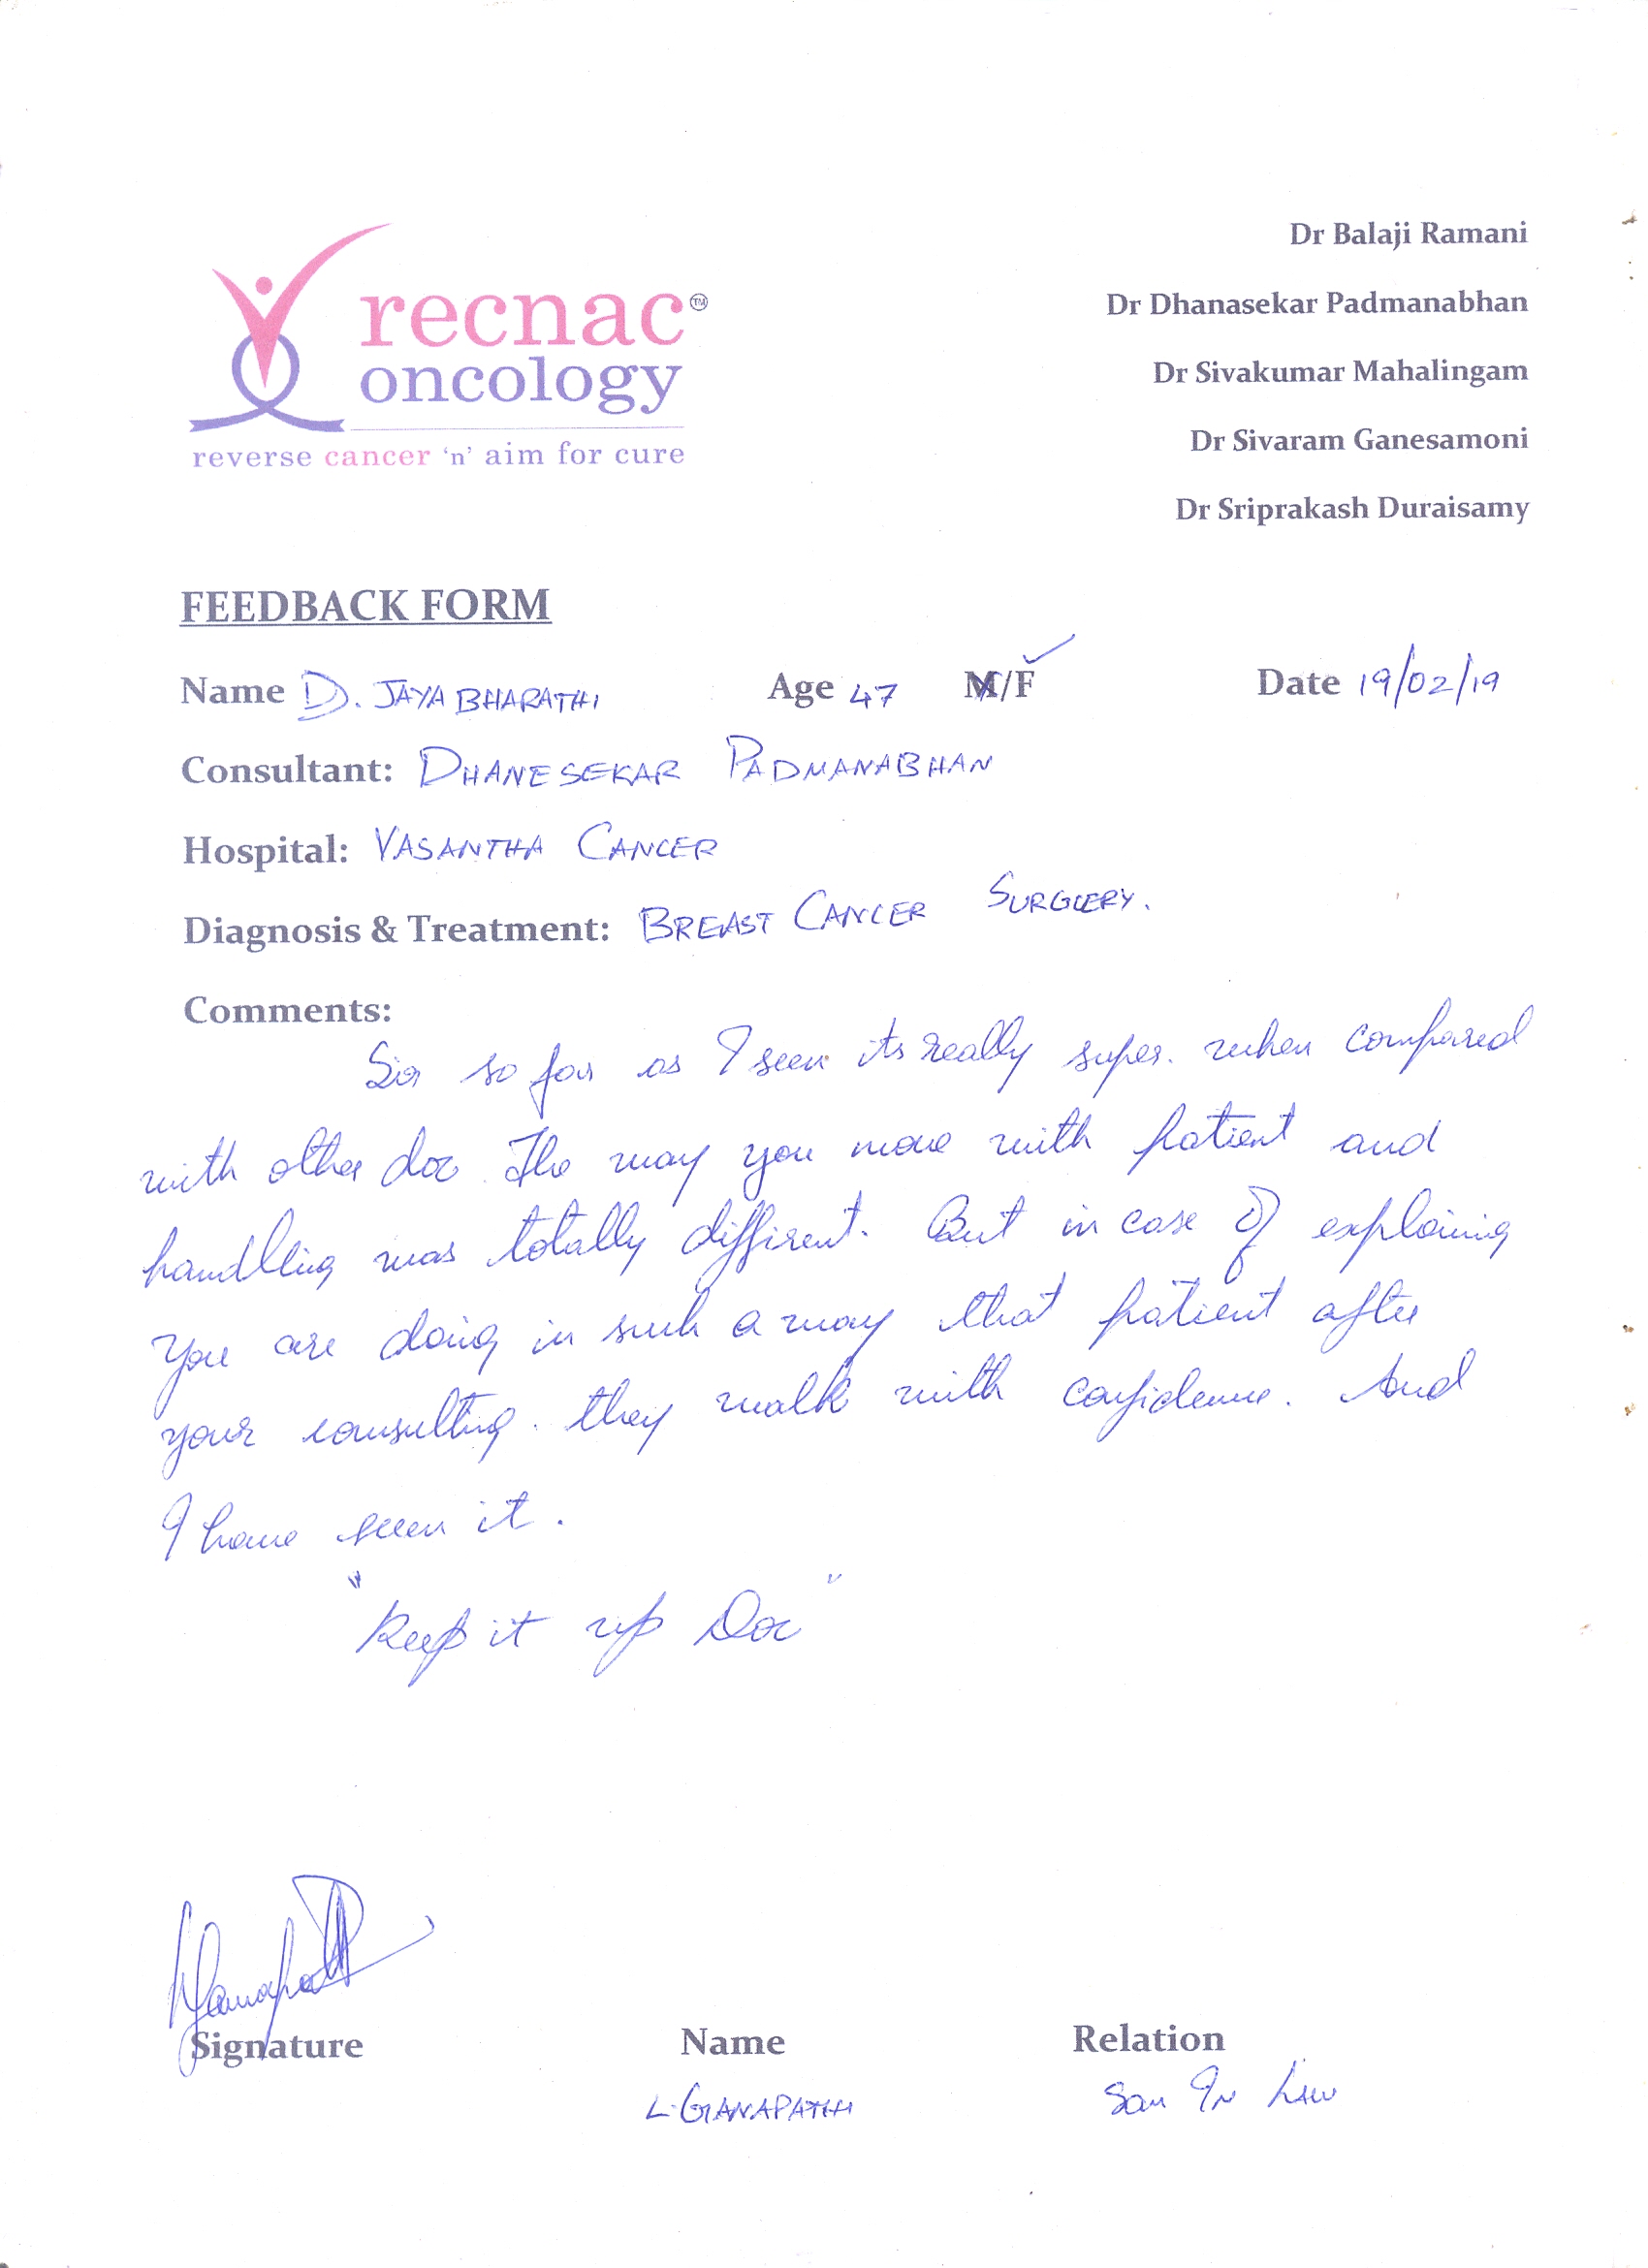 recnac TM
oncology
reverse cancer 'n' aim for cure
Dr Balaji Ramani
Dr Dhanasekar Padmanabhan
Dr Sivakumar Mahalingam
Dr Sivaram Ganesamoni
Dr Sriprakash Duraisamy
FEEDBACK FORM
Name D. JAYA BHARATHI Age 47 M/F Date 19/02/19
Consultant: DHANESEKAR PADMANABHAN
Hospital: VASANTHA CANCER
Diagnosis & Treatment: BREAST CANCER SURGERY.
Comments:
Sir so far as I seen its really super. when compared
with other doc. The way you move with patient and
handlling was totally diffirent. But in case of explaining
you are doing in such a way that patient after
your consulting. they walk with confidence. And
I have seen it.
"Keep it up Doc"
Signature Name Relation
L. GANAPATHI Son In Law